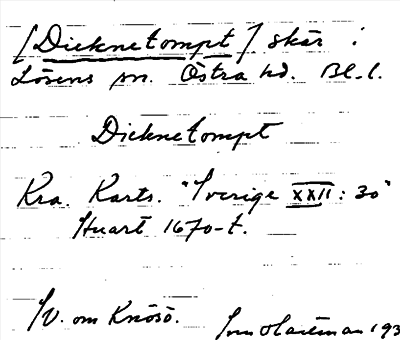 [Dicknetompt] skär i
Lösens sn. Östra hd. Bl. l.
Dicknetompt
Kra. Karts. "Sverige XXII: 30"
Stuart 1670-t.
SV. om Knösö.
193